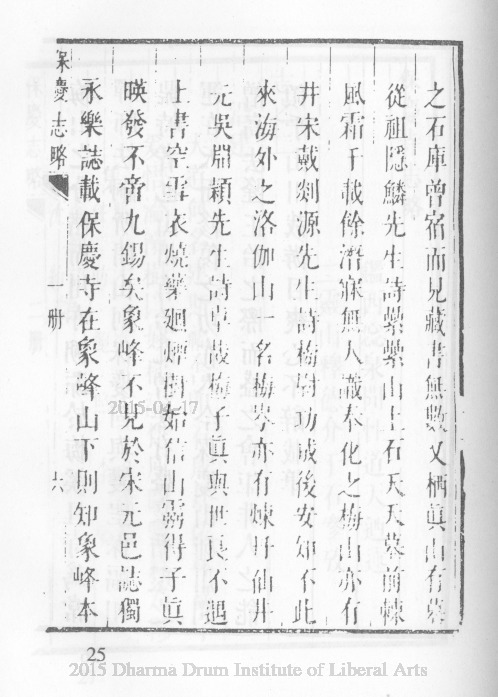 之石庫曾宿而見藏書無數又栖眞山有墓
從祖隱鱗先生詩纍纍山上石夭夭墓前棘
風霜千載餘潛寐無人識奉化之梅山亦有
井宋戴剡源先生詩梅尉功成後安知不此
來海外之洛伽山一名梅岑亦有煉丹仙井
元吳淵穎先生詩卓哉梅子眞與世良不遇
上書空雪衣燒藥廻煙樹如信山霛得子眞
暎發不啻九錫矣象峰不見於宋元邑誌獨
永樂誌載保慶寺在象峰山下則知象峰本
保慶志略 一册 六
25
2015-04-17
2015 Dharma Drum Institute of Liberal Arts